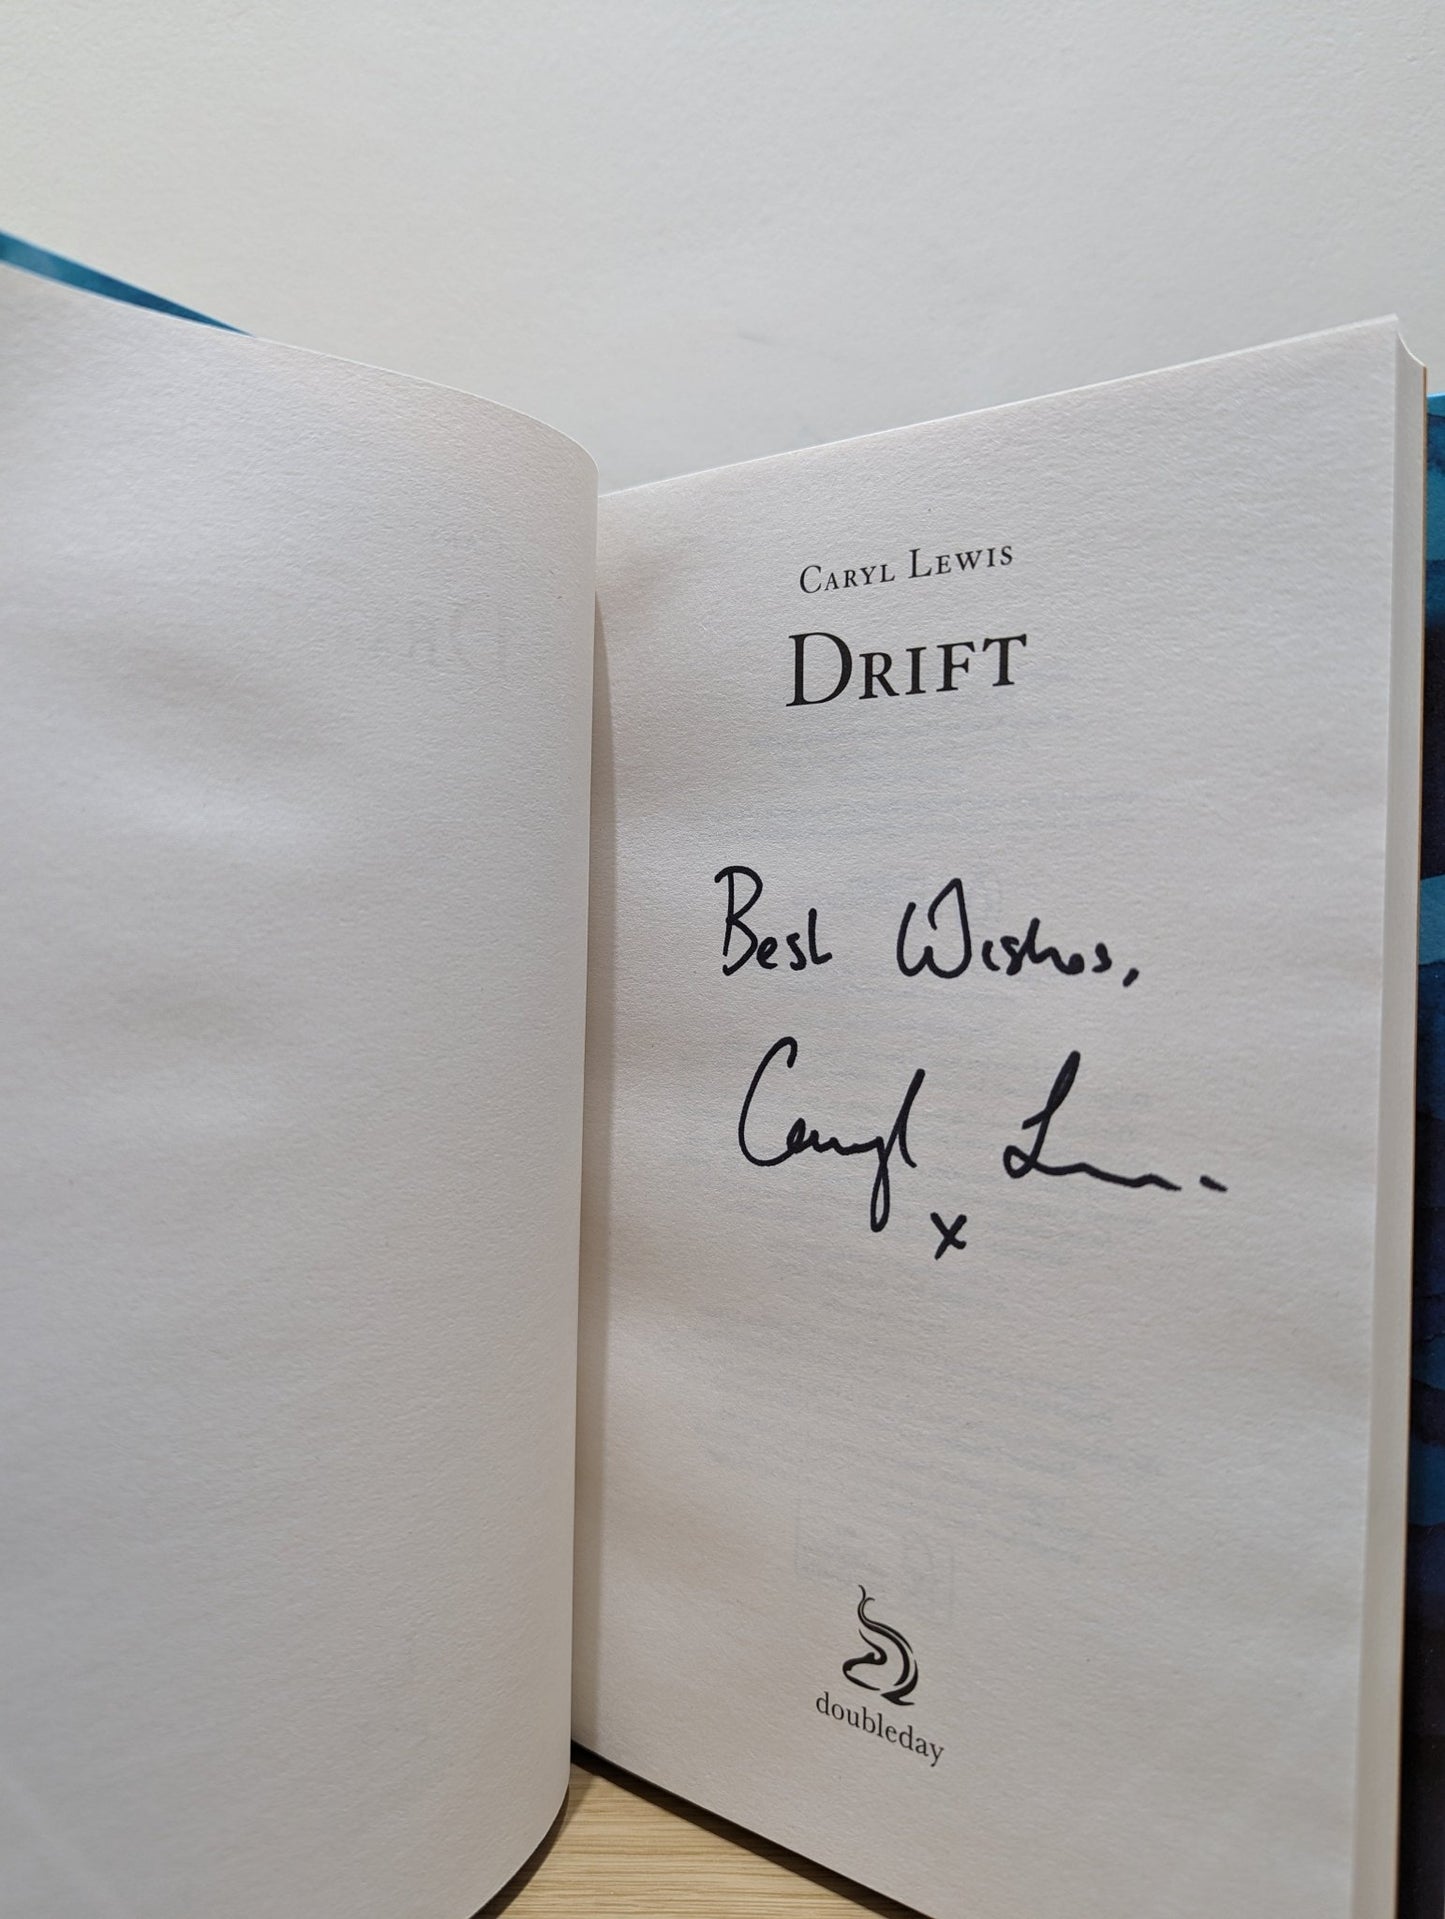 CARYL LEWIS
DRIFT
Best Wishes,
Caryl Lewis
x
doubleday